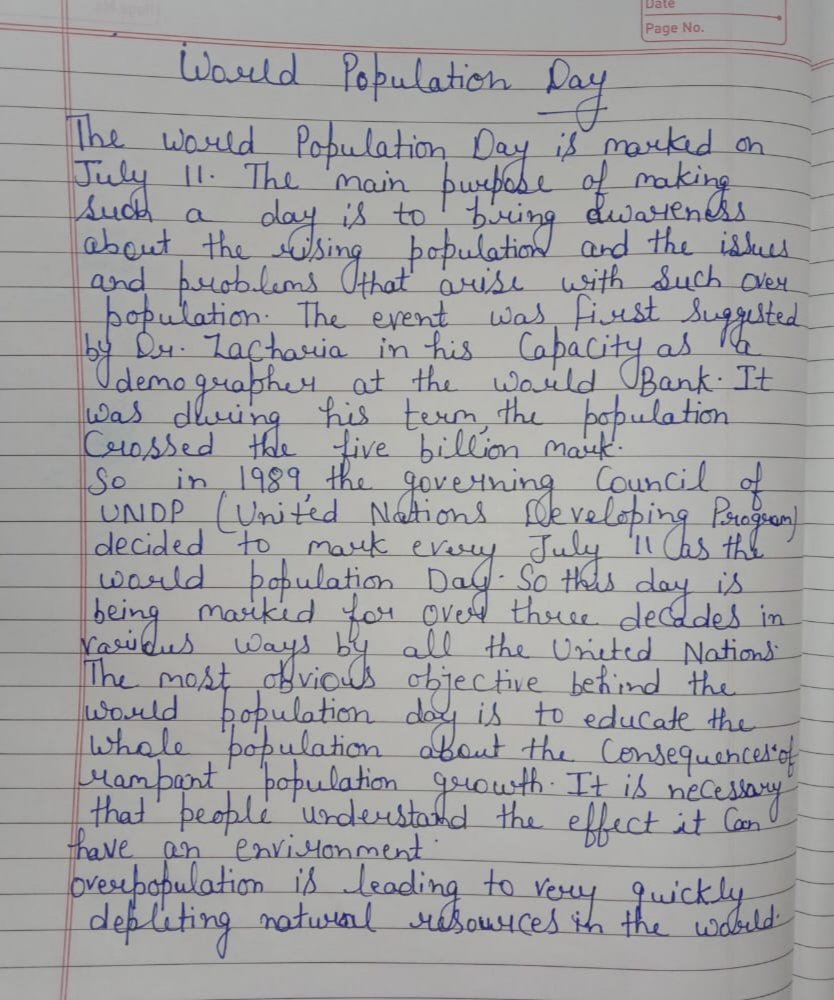 Date
Page No.
World Population Day
The world Population Day is marked on
July 11. The main purpose of making
such a day is to bring awareness
about the rising population and the issues
and problems that arise with such over
population. The event was first suggested
by Dr. Zacharia in his Capacity as a
demographer at the world Bank. It
was during his term, the population
Crossed the five billion mark.
So in 1989, the governing Council of
UNDP (United Nations Developing Program)
decided to mark every July 11 as the
world population Day. So this day is
being marked for over three decades in
various ways by all the United Nations.
The most obvious objective behind the
world population day is to educate the
whole population about the Consequences of
rampant population growth. It is necessary
that people understand the effect it Can
have an environment.
overpopulation is leading to very quickly
depleting natural resources in the world.